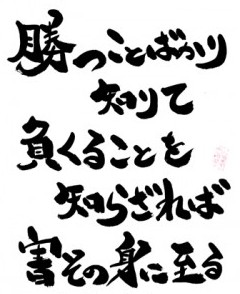 勝つことばかり
知りて
負くることを
知らざれば
害その身に至る